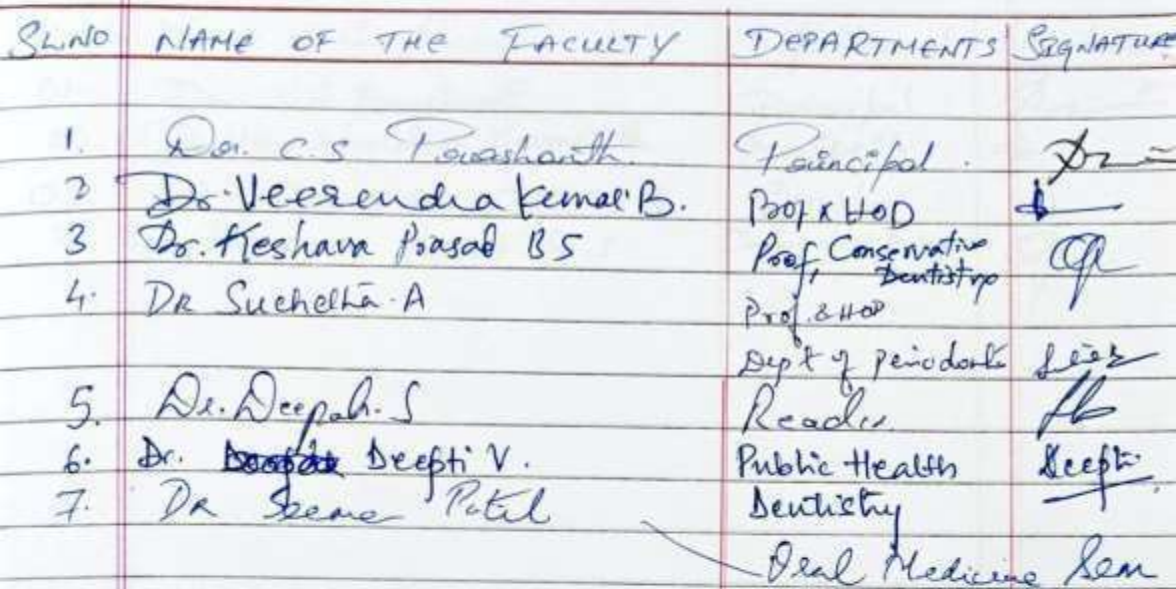 SL.NO NAME OF THE FACULTY DEPARTMENTS SIGNATURE
1. Dr. C.S Prashanth. Principal.
2 Dr. Veerendra Kumar B. Prof & HOD
3 Dr. Keshava Prasad BS Prof, Conservative
Dentistry
4. DR Suchetha. A Prof. & HOD
Dep't of Periodontics
5. Dr. Deepak. S Reader
6. Dr. Deepti V. Public Health Deepti
7. DR Seema Patil Dentistry
Oral Medicine Seem